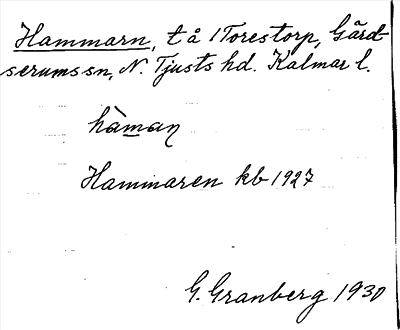 Hammarn, t å 1 Torestorp, Gärd-
serums sn, N. Tjusts hd. Kalmar l.
hàman
Hammaren kb 1927
G. Granberg 1930